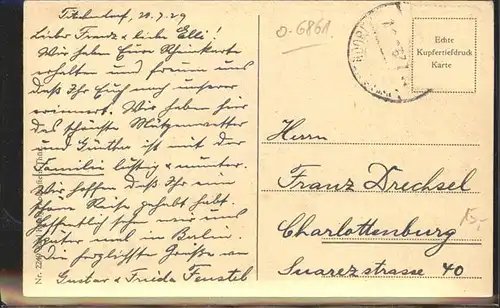 20.7.29
Lieber Franz & liebe Elli!
Wir haben Eure Rheinkarte
erhalten und freuen uns
daß Ihr Euch noch unserer
erinnert. Wir haben hier
das schönste
und Günther ist mit der
Familie lustig & munter.
Wir hoffen daß Ihr ein
schöne Reise gehabt habt.
Hoffentlich sehn wir uns
später mal in Berlin
Die herzlichsten Grüße von
Gustav & Frieda Fenstel
0-6861
Echte
Kupfertiefdruck
Karte
Herrn
Franz Drechsel
Charlottenburg
15,-
Suarezstrasse 40